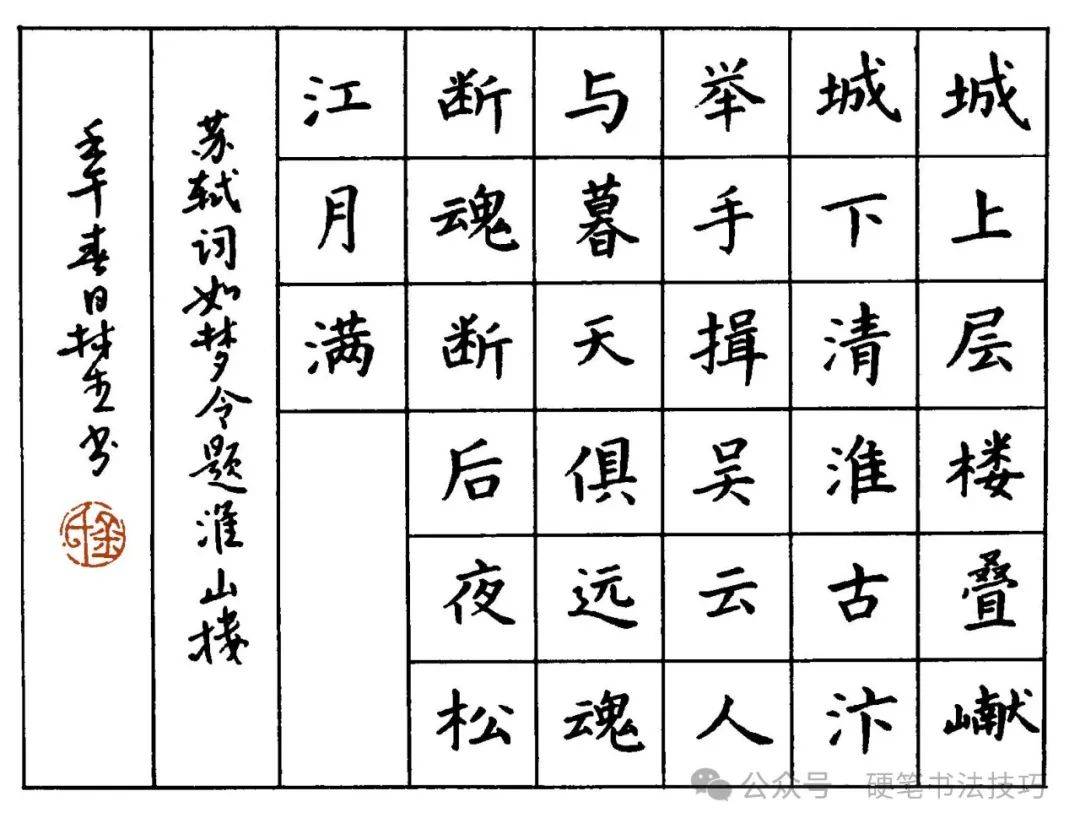 城上层楼叠𪩘
城下清淮古汴
举手揖吴云人
与暮天俱远魂
断魂断后夜松
江月满
苏轼词如梦令题淮山楼
壬午春日书
公众号 · 硬笔书法技巧